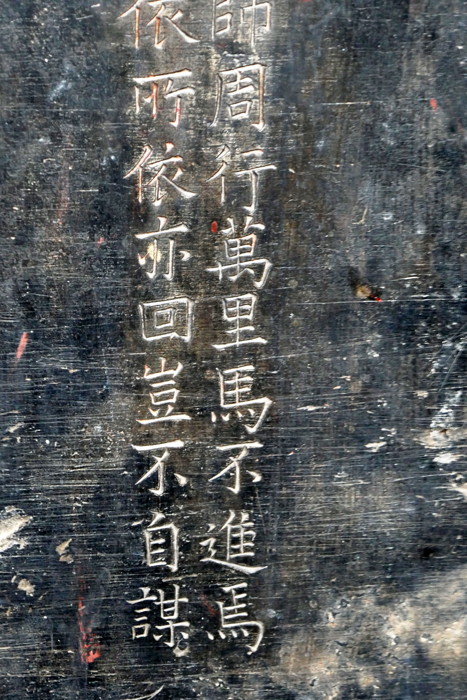 師周行萬里馬不進馬
依所依亦回豈不自謀